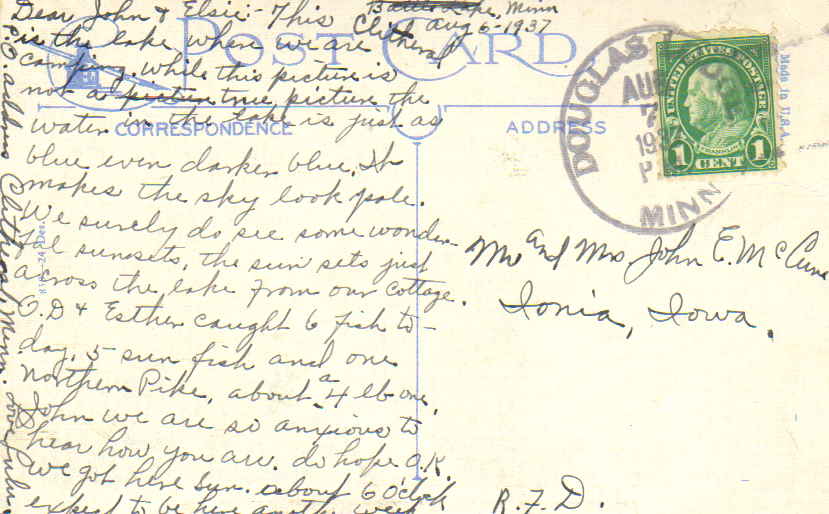 Battle Lake, Minn
Clitherall Aug 6-1937
Dear John & Elsie:- This
is the lake where we are
camping. While this picture is
not a picture true picture the
water in the lake is just as
blue even darker blue. It
makes the sky look pale.
We surely do see some wonder-
ful sunsets, the sun sets just
across the lake from our cottage.
O.D & Esther caught 6 fish to-
day. 5 sun fish and one
Northern Pike, about a 4 lb one.
John we are so anxious to
hear how you are. do hope O.K.
We got here Sun. about 6 o'clock
expect to be here another week
P.O address Clitherall, Minn. Love Lulu
POST CARD
CORRESPONDENCE
ADDRESS
Made in U.S.A.
DOUGLAS
AUG
7
1937
P
MINN
UNITED STATES POSTAGE
FRANKLIN
1 CENT 1
Mr and Mrs John E. McCune
Ionia, Iowa.
R.F.D.